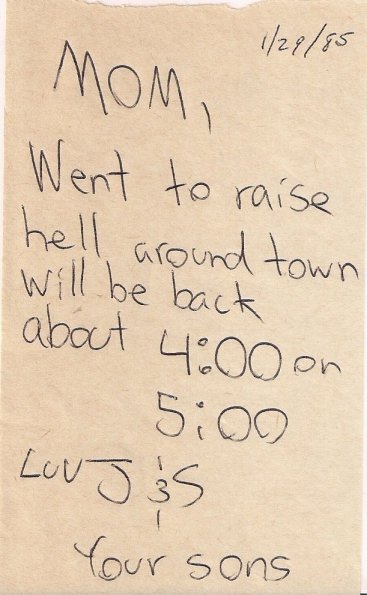 1/29/85
MOM,
Went to raise
hell around town
will be back
about 4:00 on
5:00
LUV J & S
Your sons